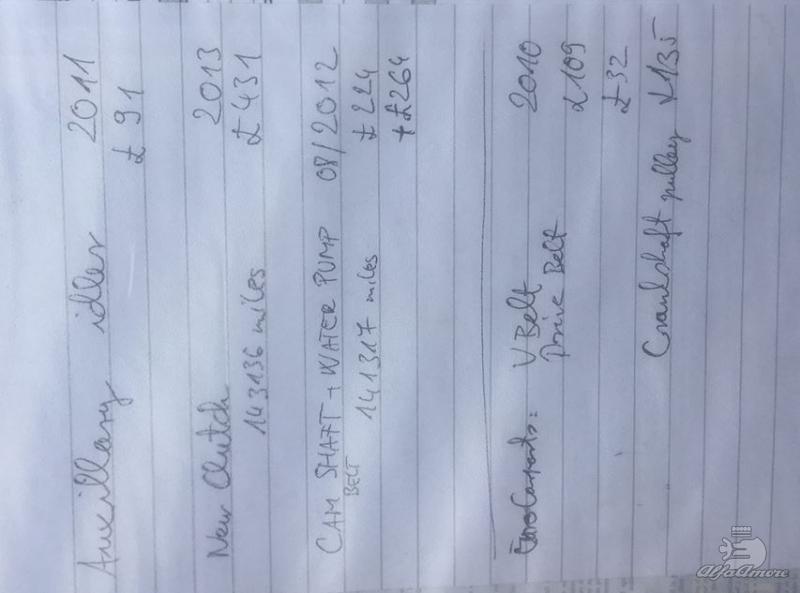 Auxillary idler 2011
£91
New Clutch 2013
143136 miles £431
CAM SHAFT + WATER PUMP 08/2012
BELT 141317 miles £224
+ £264
V Belt 2010
Drive Belt £109
£32
Crankshaft pulley £135
AlfaAmore